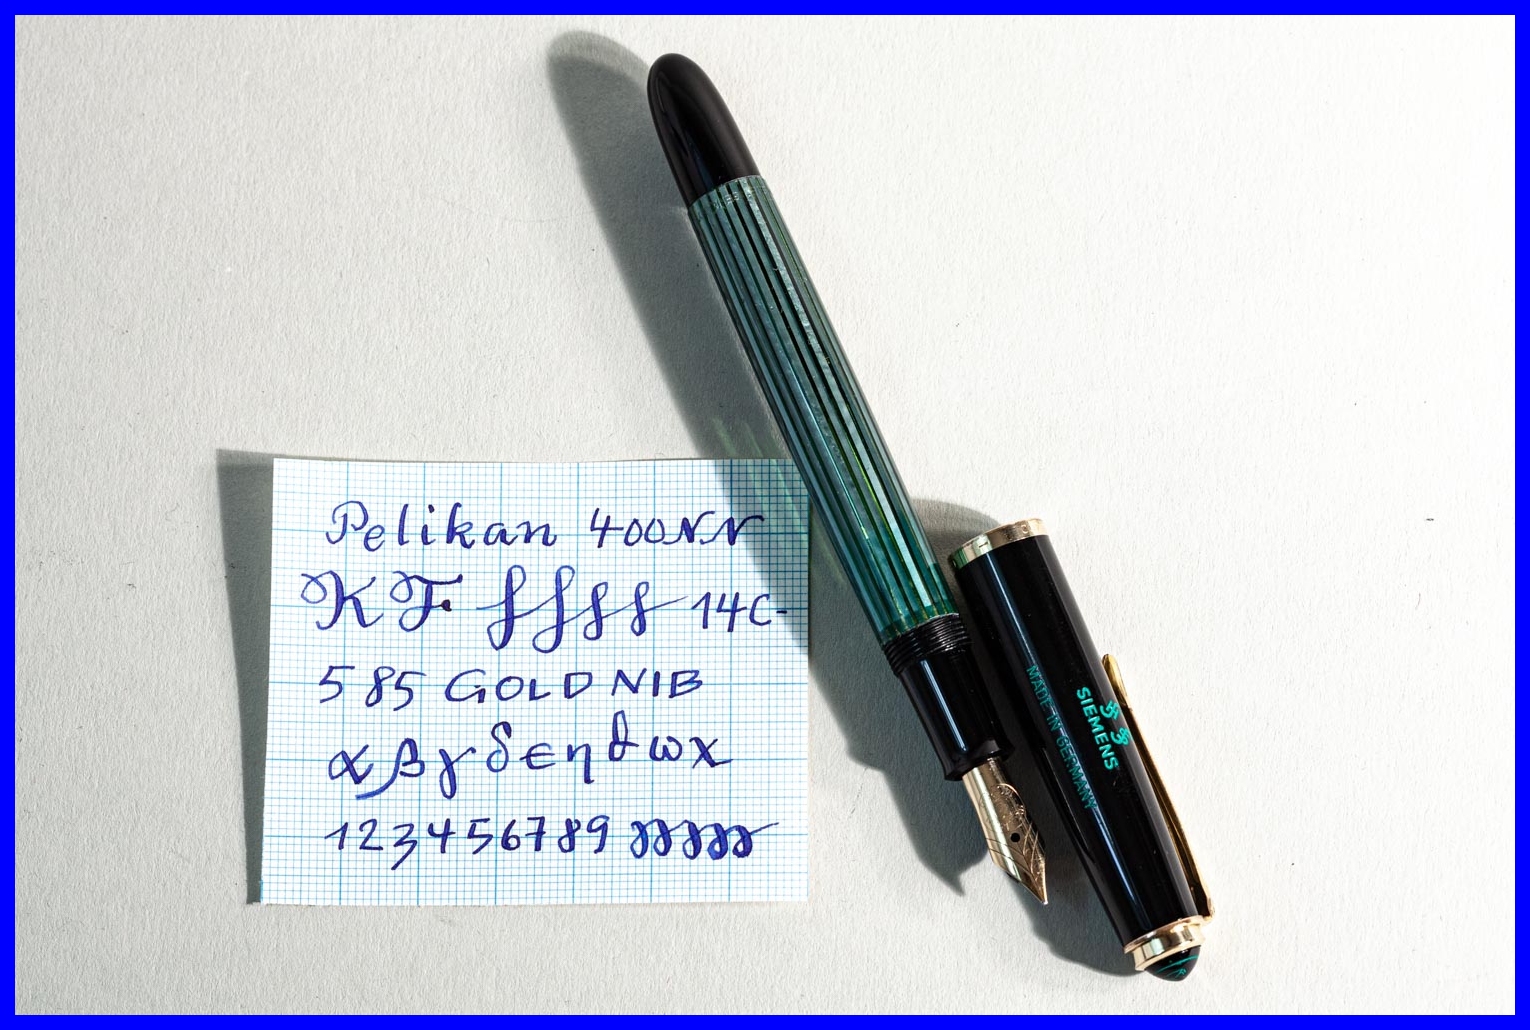 Pelikan 400NN
KF ffff 14C-
585 GOLD NIB
αβγδϵηϑωχ
123456789
SIEMENS
MADE IN GERMANY